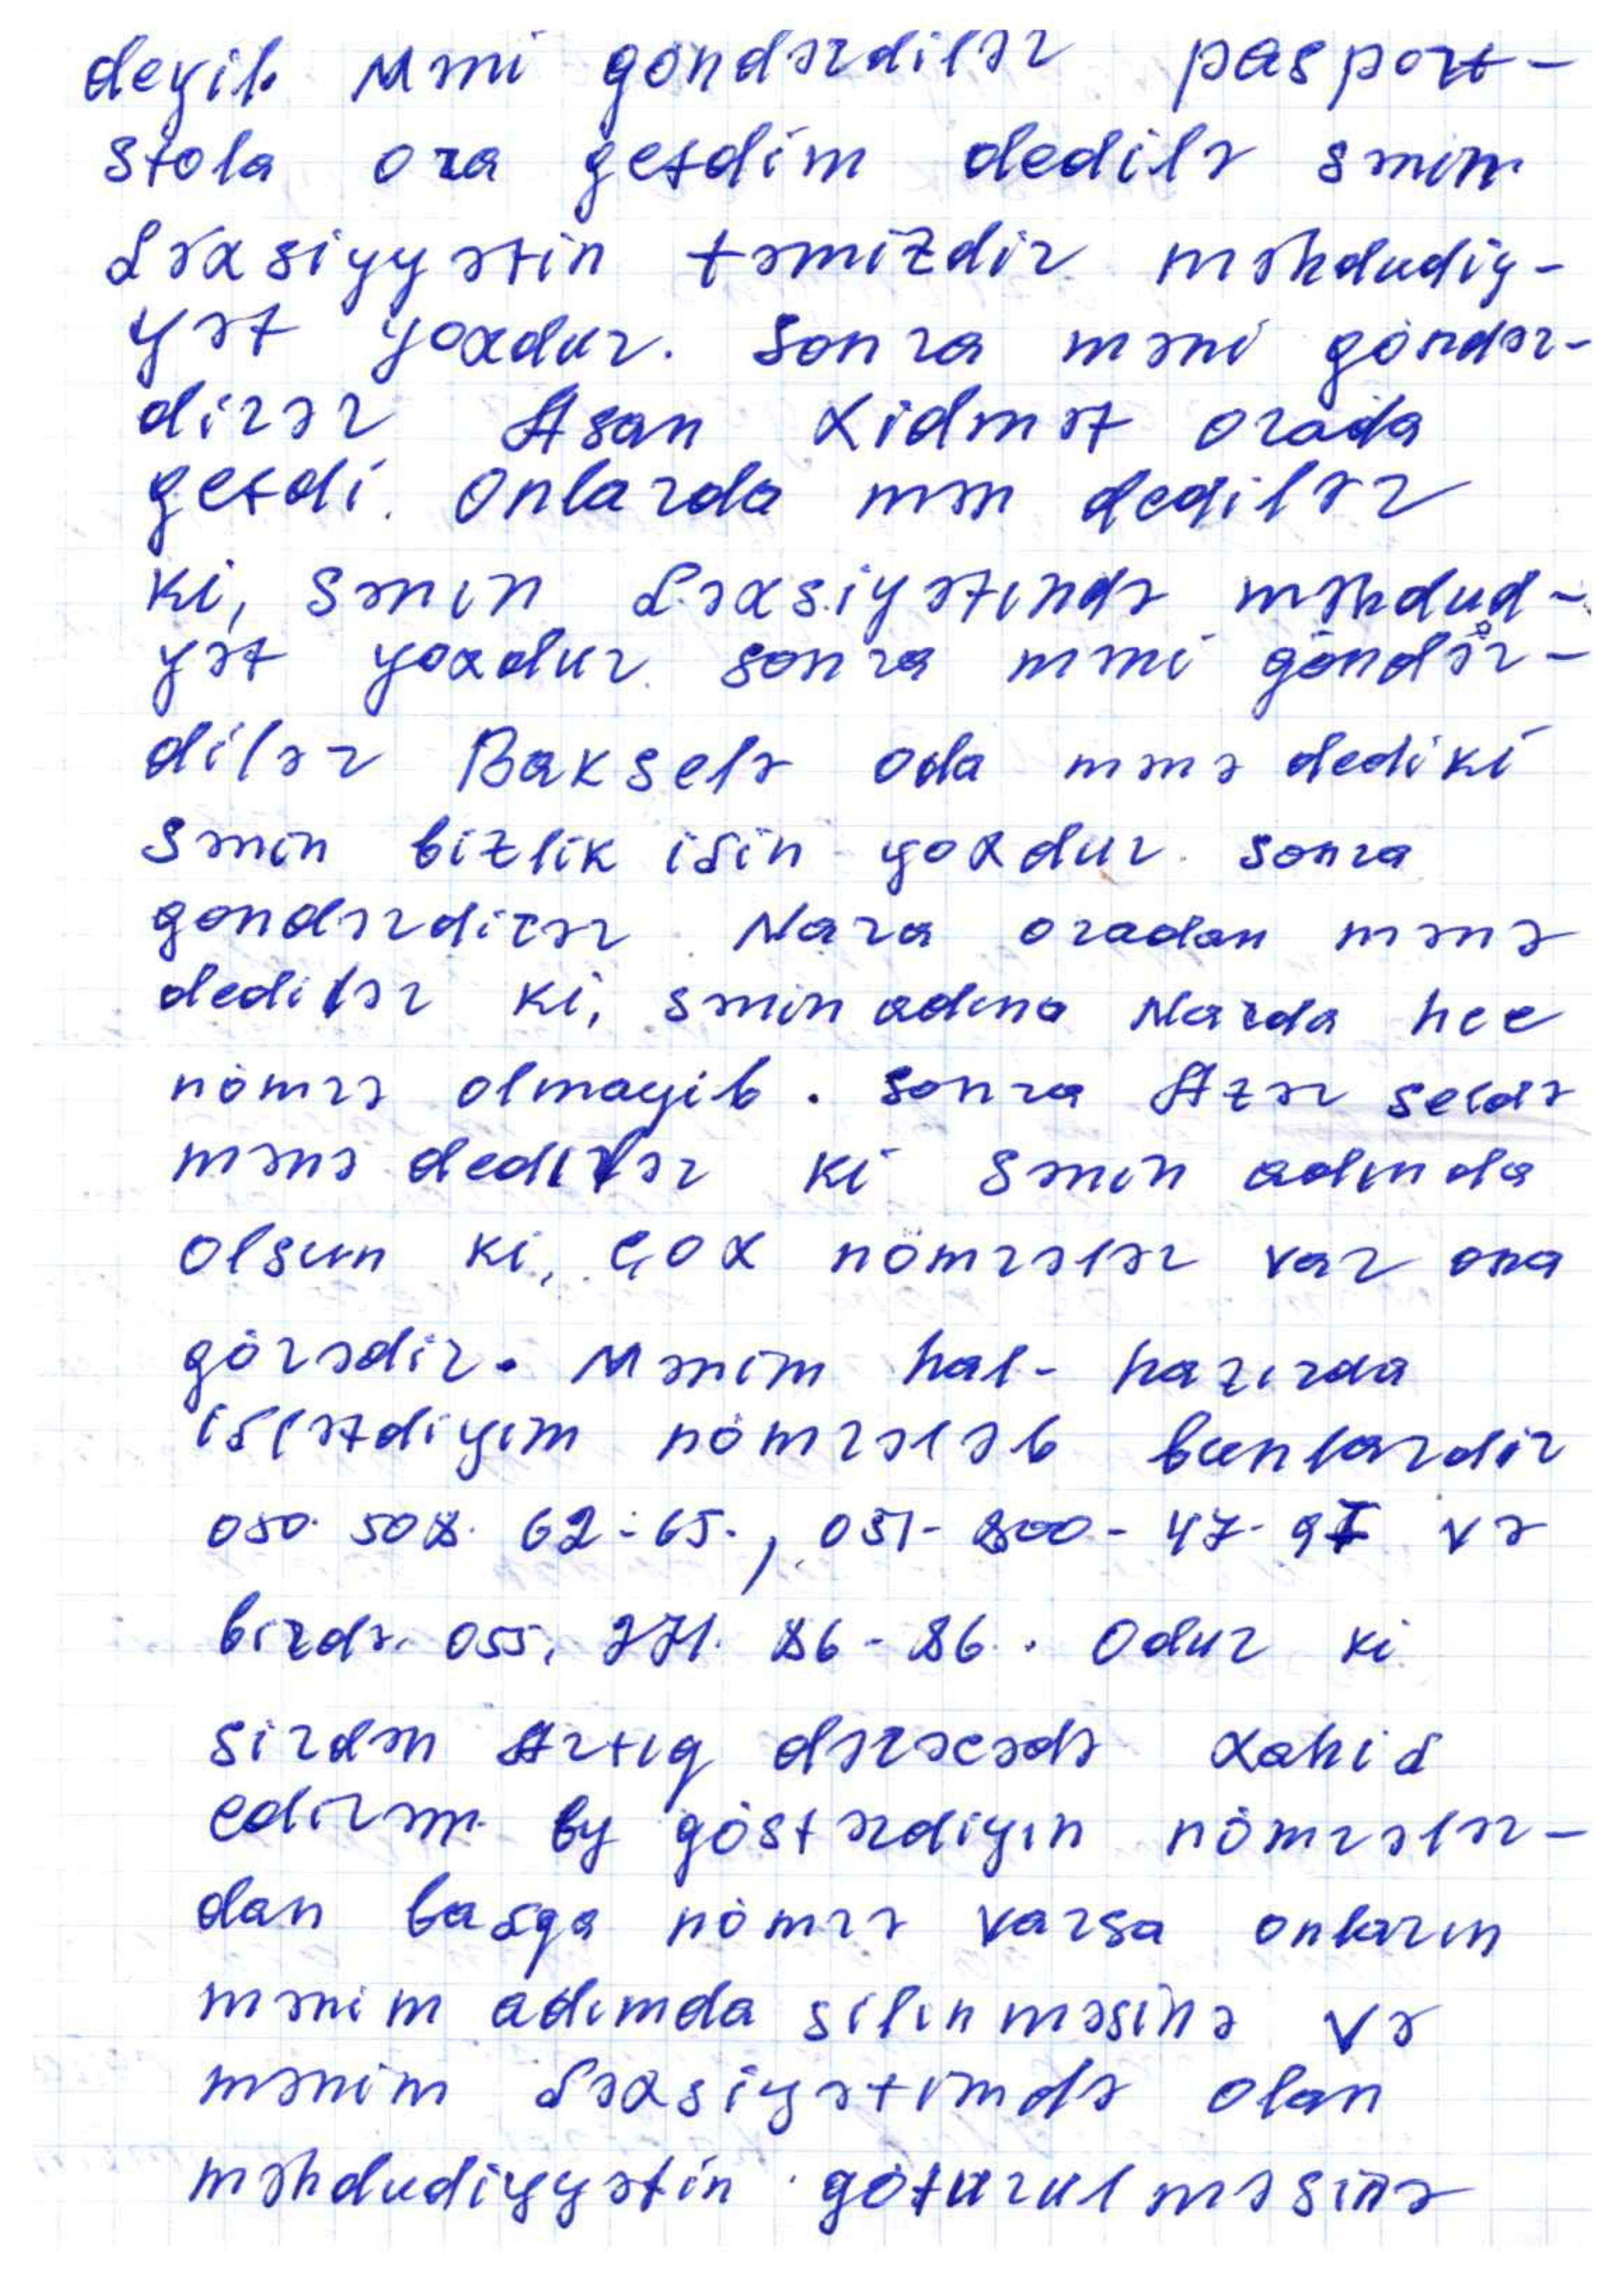 deyil. Məni göndərdilər pasport-
stola ora getdim dedilə sənin
Şəxsiyyətin təmizdir məhdudiy-
yət yoxdur. Sonra məni göndər-
dirər Asan Xidmət orada
getdi. Onlarda mən dedilər
ki, sənin Şəxsiyətində məhdud-
yət yoxdur. sonra məni göndər-
dilər Bakselə oda mənə dediki
Sənin bizlik işin yoxdur. sonra
gondərdilər Nara oradan mənə
dedilər ki, sənin adına Narda hec
nömrə olmayib. sonra Azər seldə
mənə dedilər ki sənin adında
olsun ki, çox nömrələr var ona
görədir. Mənim hal-hazırda
işlətdiyim nömrələb bunlardir
050. 508. 62-65., 051-800-47-97 və
birdə. 055. 271. 86-86. Odur ki
sizdən Artıq dərəcədə xahiş
edirəm. by göstərdiyin nömrələr-
dan başqa nömrə varsa onların
mənim adımda silinməsinə və
mənim Şəxsiyətimdə olan
məhdudiyyətin götürulməsinə